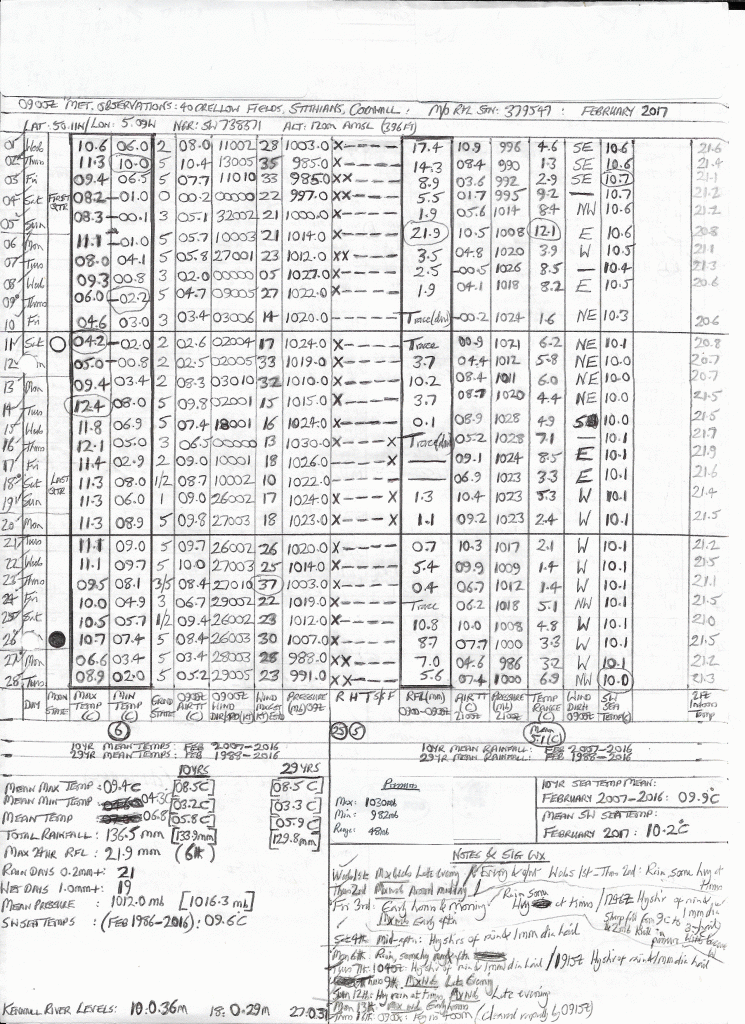 0900Z MET. OBSERVATIONS: 40 CRELLOW FIELDS, STITHIANS, CORNWALL: M/O RFL STN: 379547: FEBRUARY 2017
LAT: 50.11N/LON: 5.09W NGR: SW 738371 ALT: 120m AMSL (396FT)
01 Wed 10.6 06.0 2 08.0 11002 28 1003.0 X---- 17.4 10.9 996 4.6 SE 10.6 21.6
02 Thu 11.3 10.0 5 10.4 13005 35 985.0 X---- 14.3 08.4 990 1.3 SE 10.6 21.4
03 Fri 09.4 06.5 5 07.7 11010 33 985.0 XX--- 8.9 03.6 992 2.9 SE 10.7 21.1
04 Sat FIRST QTR 08.2 -01.0 0 00.2 00000 22 997.0 XX--- 5.5 01.7 995 9.2 — 10.7 21.2
05 Sun 08.3 -00.1 3 05.1 32002 21 1000.0 X---- 1.9 05.6 1014 8.4 NW 10.6 21.2
06 Mon 11.1 -01.0 5 05.7 10003 21 1014.0 X---- 21.9 10.5 1008 12.1 E 10.6 20.8
07 Tues 08.0 04.1 5 05.8 27001 23 1012.0 XX--- 3.5 04.8 1020 3.9 W 10.5 21.1
08 Wed 09.3 00.8 3 02.0 00000 05 1027.0 X---- 2.5 -00.5 1026 8.5 — 10.4 21.3
09 Thurs 06.0 -02.2 5 04.7 09005 27 1022.0 X---- 1.9 04.1 1018 8.2 E 10.5 20.6
10 Fri 04.6 03.0 3 03.4 03006 14 1020.0 ----- Trace -00.2 1024 1.6 NE 10.3 20.6
11 Sat 04.2 -02.0 2 02.6 02004 17 1024.0 X---- Trace 00.9 1021 6.2 NE 10.1 20.8
12 05.0 -00.8 2 02.5 02005 33 1019.0 X---- 3.7 04.4 1012 5.8 NE 10.0 20.7
13 Mon 09.4 03.4 2 08.3 03010 32 1010.0 X---- 10.2 08.4 1011 6.0 NE 10.0 20.7
14 Tues 12.4 08.0 5 09.8 02001 15 1015.0 X---- 3.7 08.7 1020 4.4 NE 10.0 21.5
15 Wed 11.8 06.9 5 07.4 18001 16 1024.0 X---- 0.1 08.9 1028 4.9 10.0 21.5
16 Thu 12.1 05.0 3 06.5 00000 13 1030.0 X---X Trace 05.2 1028 7.1 — 10.1 21.7
17 Fri 11.4 02.9 2 09.0 10001 18 1026.0 ----X — 09.1 1024 8.5 E 10.1 21.9
18 Sat LAST QTR 11.3 08.0 1/2 08.7 10002 10 1022.0 ----- — 06.9 1023 3.3 E 10.1 21.6
19 Sun 11.3 06.0 1 09.0 26002 17 1024.0 X---X 1.3 10.4 1023 5.3 W 10.1 21.4
20 Mon 11.3 08.9 5 09.8 27003 18 1023.0 X---X 1.1 09.2 1023 2.4 W 10.1 21.5
21 Tues 11.1 09.0 5 09.7 26002 26 1020.0 X---- 0.7 10.3 1017 2.1 W 10.1 21.2
22 Wed 11.1 09.7 5 10.0 27003 25 1014.0 X---- 5.4 09.9 1009 1.4 W 10.1 21.5
23 Thurs 09.5 08.1 3/5 08.4 27010 37 1003.0 X---- 0.4 06.7 1012 1.4 W 10.1 21.1
24 Fri 10.0 04.9 3 06.7 29002 22 1019.0 X---- Trace 06.2 1018 5.1 NW 10.1 21.5
25 Sat 10.5 05.7 1/2 09.4 26002 23 1012.0 X---- 10.8 10.0 1008 4.8 W 10.1 21.0
26 10.7 07.4 5 08.4 26003 30 1007.0 X---- 8.7 07.7 1000 3.3 W 10.1 21.5
27 Mon 06.6 03.4 5 03.4 28003 28 988.0 XX--- 7.0 04.6 986 3.2 W 10.1 21.2
28 Tues 08.9 02.0 5 05.2 29005 23 991.0 XX--- 5.6 07.4 1000 6.9 NW 10.0 21.3
DAY MOON STATE MAX TEMP (C) MIN TEMP (C) GRND STATE 0900Z AIR TT (C) 0900Z WIND DIR/SPD(KT) WIND MX GST (KT) PRESSURE (mb) 09Z R H T S/S F RFL(mm) 0900-0900Z AIR TT (C) 2100Z PRESSURE (mb) 2100Z TEMP RANGE (C) WIND DIRN 0900Z SW SEA TEMP(C) Indoors Temp
6 23 5 Mean 5.1(C)
10YR MEAN TEMPS: FEB 2007-2016
29YR MEAN TEMPS: FEB 1988-2016
10YR MEAN RAINFALL: FEB 2007-2016
29YR MEAN RAINFALL: FEB 1988-2016
10YRS 29YRS
MEAN MAX TEMP: 09.4C [08.5C] [08.5C]
MEAN MIN TEMP 04.3C [03.2C] [03.3C]
MEAN TEMP 06.8 [05.8C] [05.9C]
TOTAL RAINFALL: 136.5mm [133.9mm] [129.8mm]
MAX 24HR RFL: 21.9mm (6th)
RAIN DAYS 0.2mm+: 21
WET DAYS 1.0mm+: 19
MEAN PRESSURE: 1012.0mb [1016.3mb]
SW SEA TEMPS: (FEB 1986-2016): 09.6C
KENNALL RIVER LEVELS: 10: 0.36m 18: 0.29m 27: 0.31
Pressure
Max: 1030mb
Min: 982mb
Range: 48mb
10YR SEA TEMP MEAN:
FEBRUARY 2007-2016: 09.9C
MEAN SW SEA TEMP:
FEBRUARY 2017: 10.2C
NOTES & SIG WX
Weds 1st: Mx Wnd Late evening Weds 1st-Thu 2nd: Rain, some hvy at times
Thu 2nd Mx Wnd Around midday
Fri 3rd: Early hours & morning: Rain some hvy at times
Mx Wnd Early aftn
Sat 4th Mid-aftn: Hy shrs of rain & 1mm dia hail
Mon 6th: Rain, some hvy / 1915Z Hy shr of rain & 1mm dia hail
Tues 7th: 1040Z Hy shr of rain & 1mm dia hail
Thurs 9th: Mx Wnd Late Evening
Sun 12th: Hy rain at times, Mx Wnd Late evening
Mon 13th: Mx Wnd Early hours
Thurs 16th: 0900Z: Fg in 400m (Cleared rapidly by 0915Z)